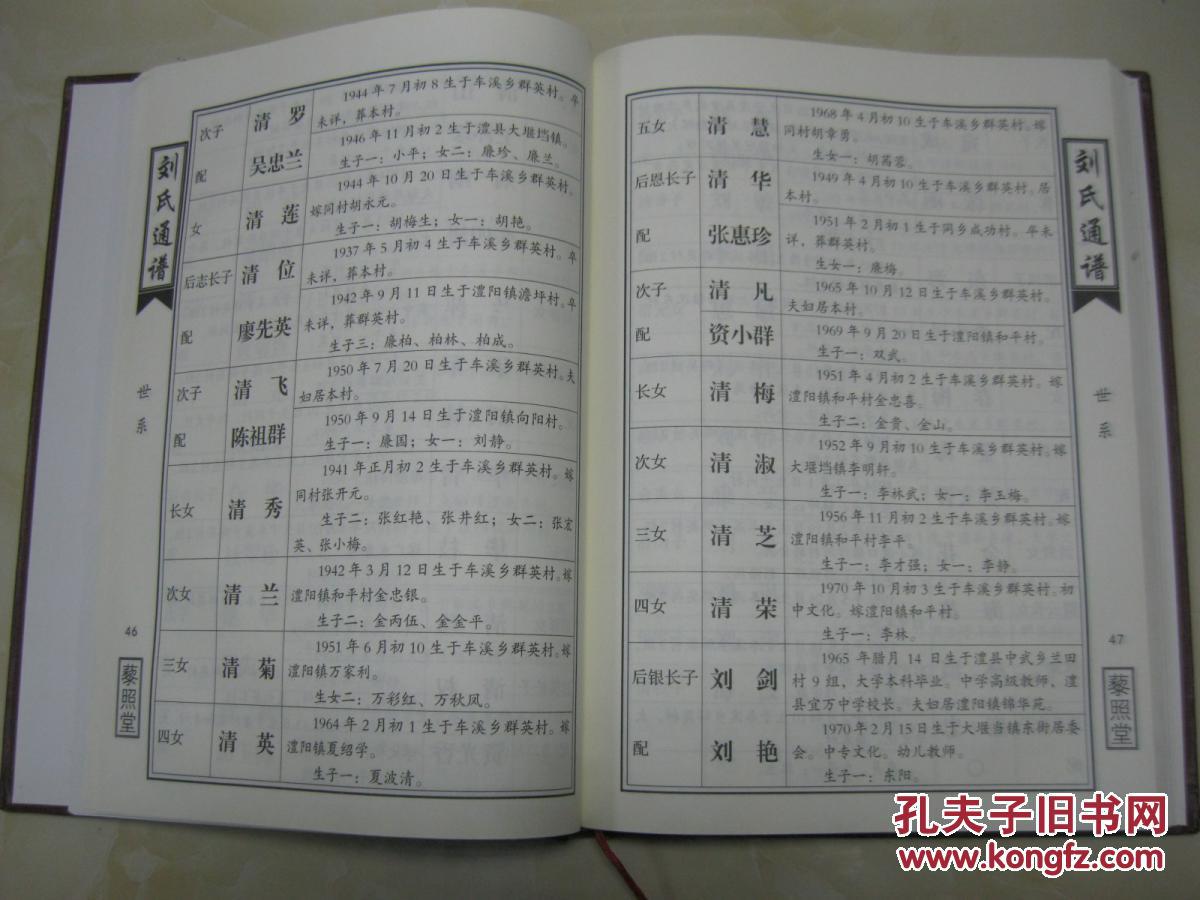 刘氏通谱
世系
46
藜照堂
次子
清罗
1944年7月初8生于车溪乡群英村。卒
未详,葬本村。
配
吴忠兰
1946年11月初2生于澧县大堰垱镇。
生子一:小平;女二:廉珍、廉兰。
女
清莲
1944年10月20日生于车溪乡群英村。
嫁同村胡永元。
生子一:胡梅生;女一:胡艳。
后志长子
清位
1937年5月初4生于车溪乡群英村。卒
未详,葬本村。
配
廖先英
1942年9月11日生于澧阳镇澹坪村。卒
未详,葬群英村。
生子三:廉柏、柏林、柏成。
次子
清飞
1950年7月20日生于车溪乡群英村。夫
妇居本村。
配
陈祖群
1950年9月14日生于澧阳镇向阳村。
生子一:廉国;女一:刘静。
长女
清秀
1941年正月初2生于车溪乡群英村。嫁
同村张开元。
生子二:张红艳、张井红;女二:张宏
英、张小梅。
次女
清兰
1942年3月12日生于车溪乡群英村。嫁
澧阳镇和平村金忠银。
生子二:金丙伍、金金平。
三女
清菊
1951年6月初10生于车溪乡群英村。嫁
澧阳镇万家利。
生女二:万彩红、万秋凤。
四女
清英
1964年2月初1生于车溪乡群英村。嫁
澧阳镇夏绍学。
生子一:夏波清。
五女
清慧
1968年4月初10生于车溪乡群英村。嫁
同村胡章勇。
生女一:胡蓉。
后恩长子
清华
1949年4月初10生于车溪乡群英村。居
本村。
配
张惠珍
1951年2月初1生于同乡成功村。卒未
详,葬群英村。
生女一:廉梅。
次子
清凡
1965年10月12日生于车溪乡群英村。
夫妇居本村。
配
资小群
1969年9月20日生于澧阳镇和平村。
生子一:双武。
长女
清梅
1951年4月初2生于车溪乡群英村。嫁
澧阳镇和平村金忠喜。
生子二:金贵、金山。
次女
清淑
1952年9月初10生于车溪乡群英村。嫁
大堰垱镇李明轩。
生子一:李林武;女一:李玉梅。
三女
清芝
1956年11月初2生于车溪乡群英村。嫁
澧阳镇和平村李平。
生子一:李才强;女一:李静。
四女
清荣
1970年10月初3生于车溪乡群英村。初
中文化。嫁澧阳镇和平村。
生子一:李林。
后银长子
刘剑
1965年腊月14日生于澧县中武乡兰田
村9组,大学本科毕业。中学高级教师,澧
县宜万中学校长。夫妇居澧阳镇锦华苑。
配
刘艳
1970年2月15日生于大堰当镇东街居委
会。中专文化。幼儿教师。
生子一:东阳。
刘氏通谱
世系
47
藜照堂
孔夫子旧书网
www.kongfz.com